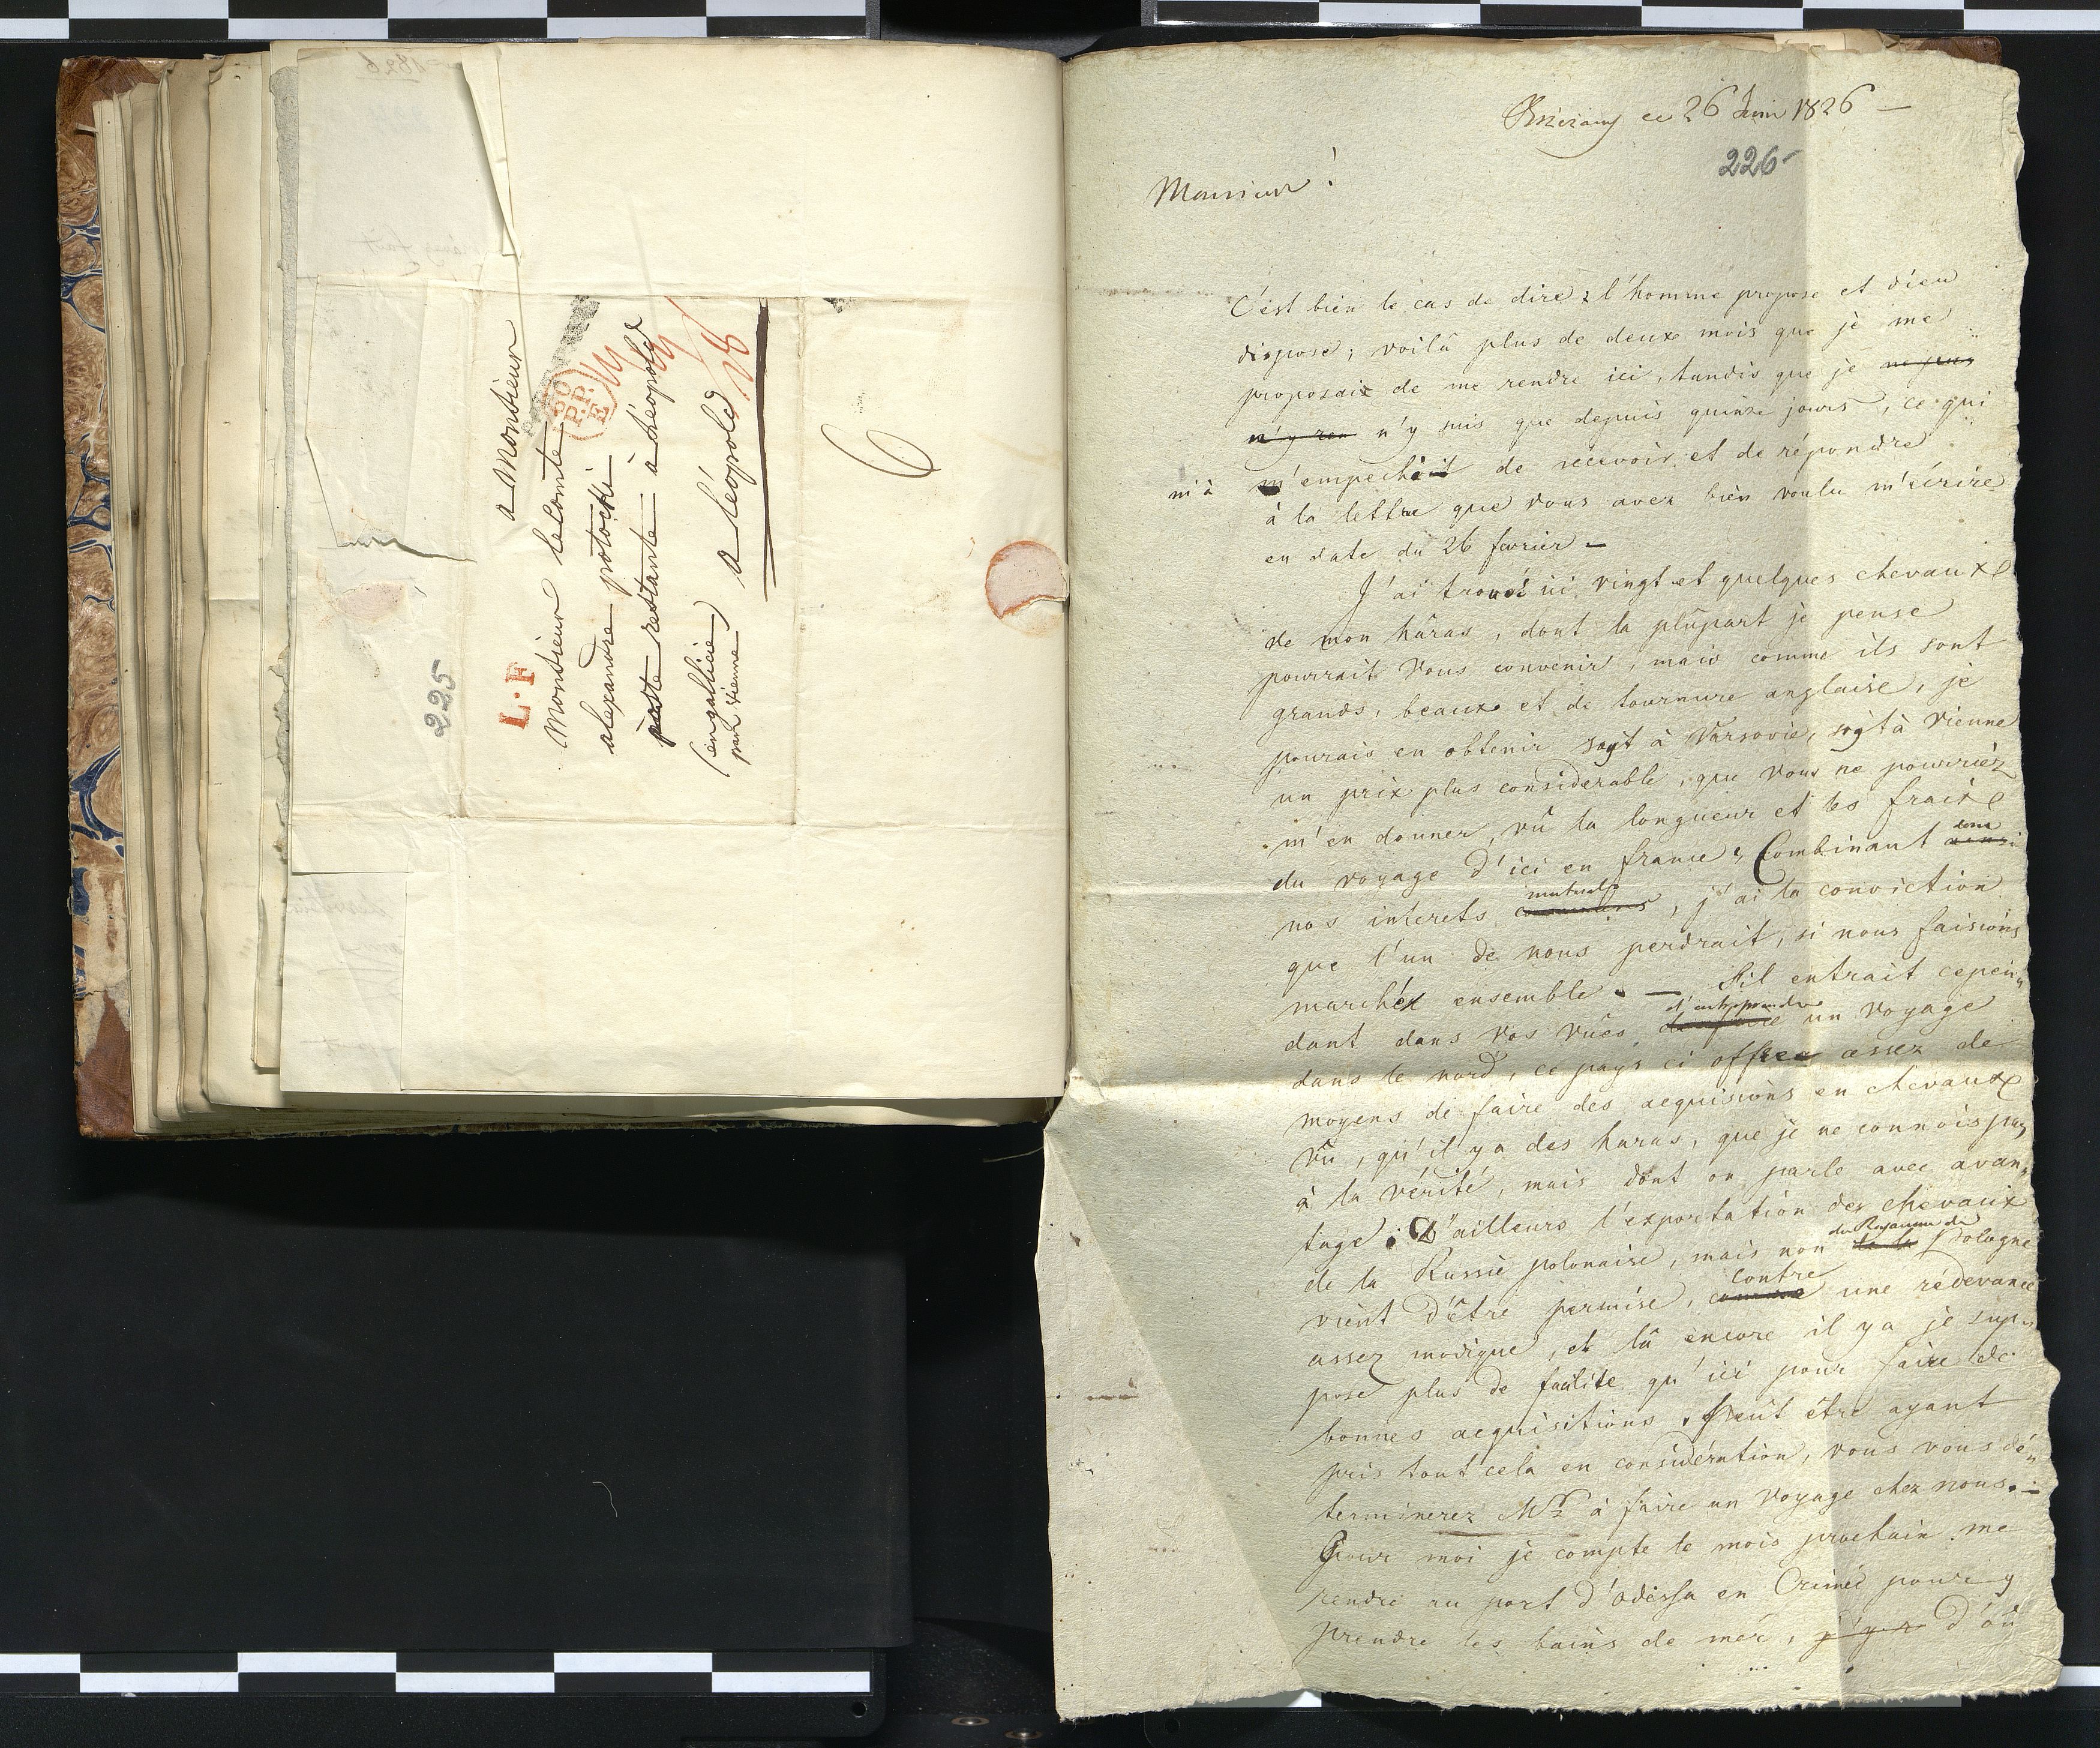 225
L.F
80
P.P.
E
a Monsieur
Monsieur le Comte
alexandre potocki
poste restante à Léopold
a Léopold
(en gallicie)
par vienne
6
Brzezany ce 26 Juin 1826 —
226
Monsieur !
C'est bien le cas de dire : l'homme propose et dieu
dispose ; voilà plus de deux mois que je me
proposais de me rendre ici, tandis que je ne suis
n'y suis que depuis quinze jours, ce qui
ni à m'empechait de récevoir et de répondre
à la lettre que vous avez bien voulu m'écrire
en date du 26 fevrier —
J'ai trouvé ici vingt et quelques chevaux
de mon hâras, dont la plûpart je pense
pourrait vous convenir, mais comme ils sont
grands, beaux et de tournure anglaise, je
pourais en obtenir soyt à Varsovie, soyt à Vienne
un prix plus considerable, que vous ne pourriéz
m'en donner, vû la longueur et les fraix
du voyage d'ici en france. Combinant ainsi donc
nos intérets communs mutuels, j'ai la conviction
que l'un de nous perdrait, si nous faisions
marchéx ensemble. — S'il entrait cepen„
dant dans vos vûes d'entreprendre un voyage
dans le nord, ce pays ci offre assez de
moyens de faire des acquisions en chevaux
vû, qu'il y a des haras, que je ne connois pas
à la vérité, mais dont on parle avec avan„
tage : D'ailleurs l'exportation des chevaux
de la Russie polonaise, mais non de la du Royaume de Pologne
vient d'être permise, comme contre une rédevance
assez modique, et là encore il y a je sup„
pose plus de facilité qu'ici pour faire de
bonnes acquisitions. Peut être ayant
pris tout cela en considération, vous vous dé„
terminerez Mr à faire un voyage chez nous. —
Pour moi je compte le mois prochain me
rendre au port d'Odessa en Crimée pour y
prendre les bains de mer, j'y r d'où